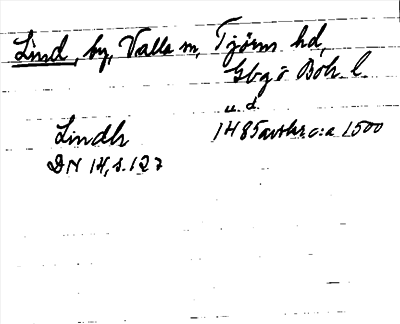 Lind, by, Valla sn, Tjörns hd,
Gbg o Boh. l.
u. d.
Lindh 1485 avskr. c:a 1500
DN 14, s. 127